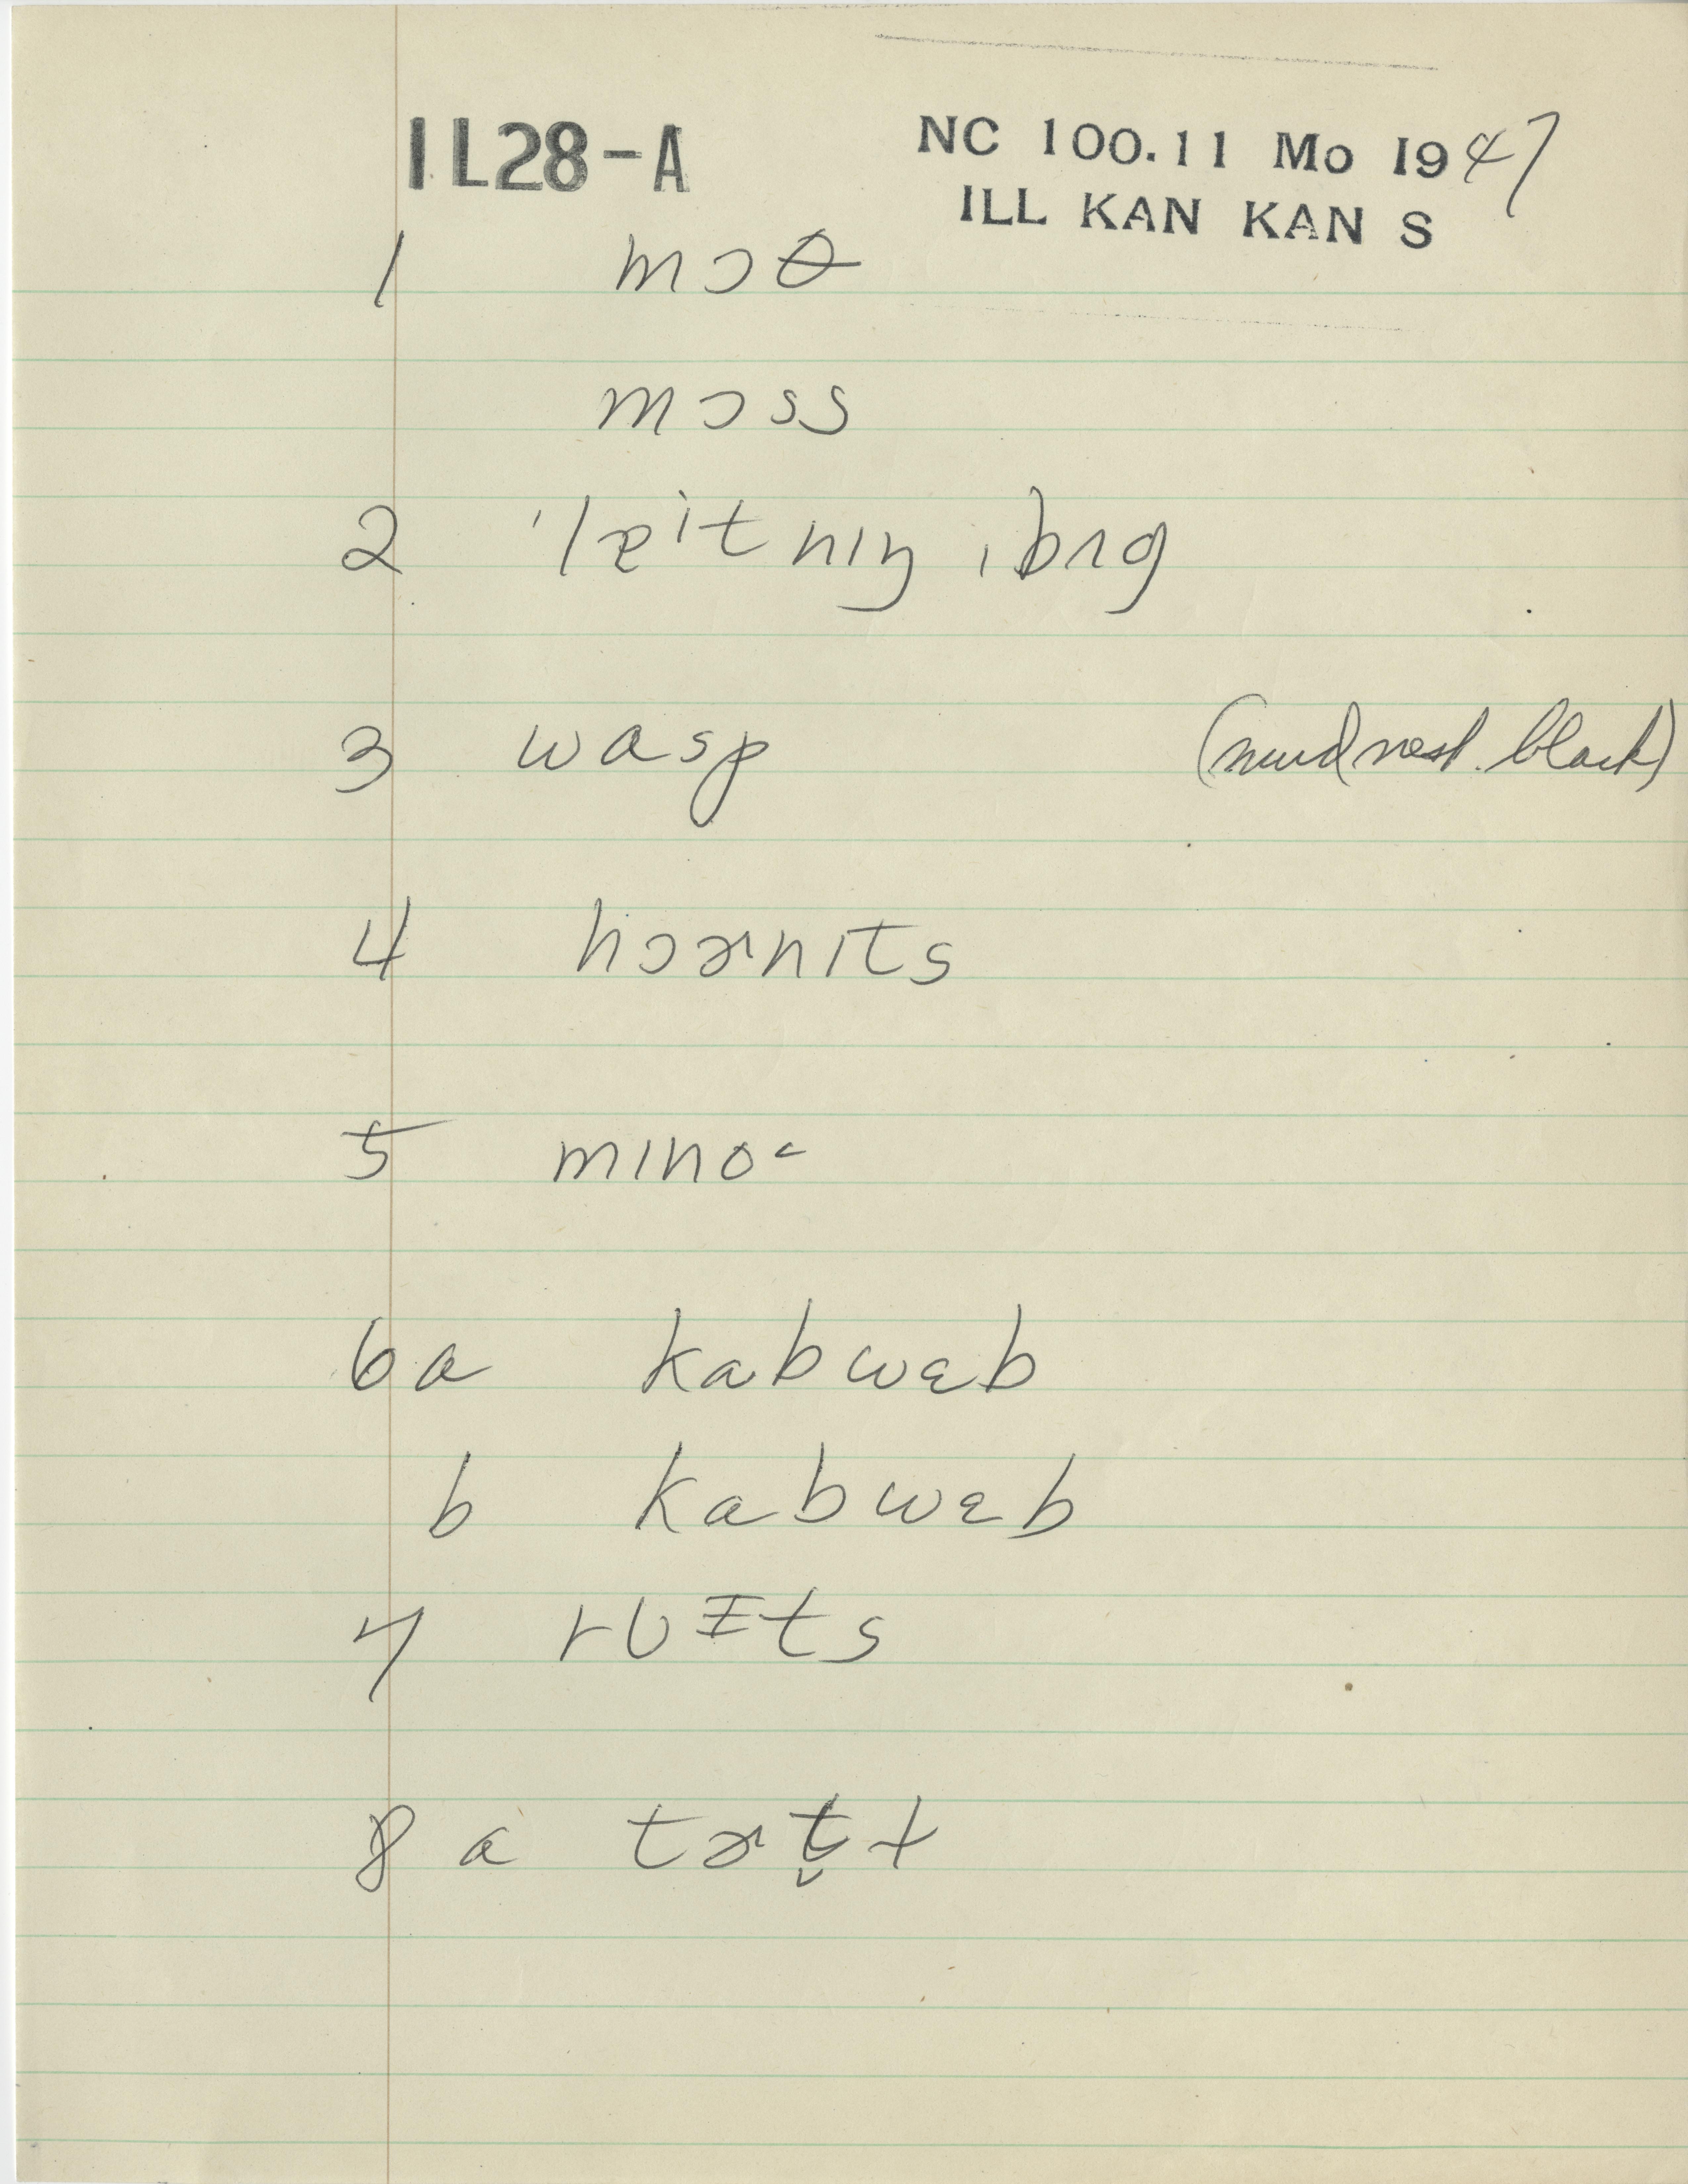 1L28-A
NC 100.11 Mo 1947
ILL KAN KAN S
1 mɔθ
mɔss
2 ˈlaitnɪŋ ˌbʌg
3 wasp (mud nest. black)
4 hɔɚnɪts
5 mɪno˂
6a kabwɛb
b kabwɛb
7 rᴜɪts
8 a